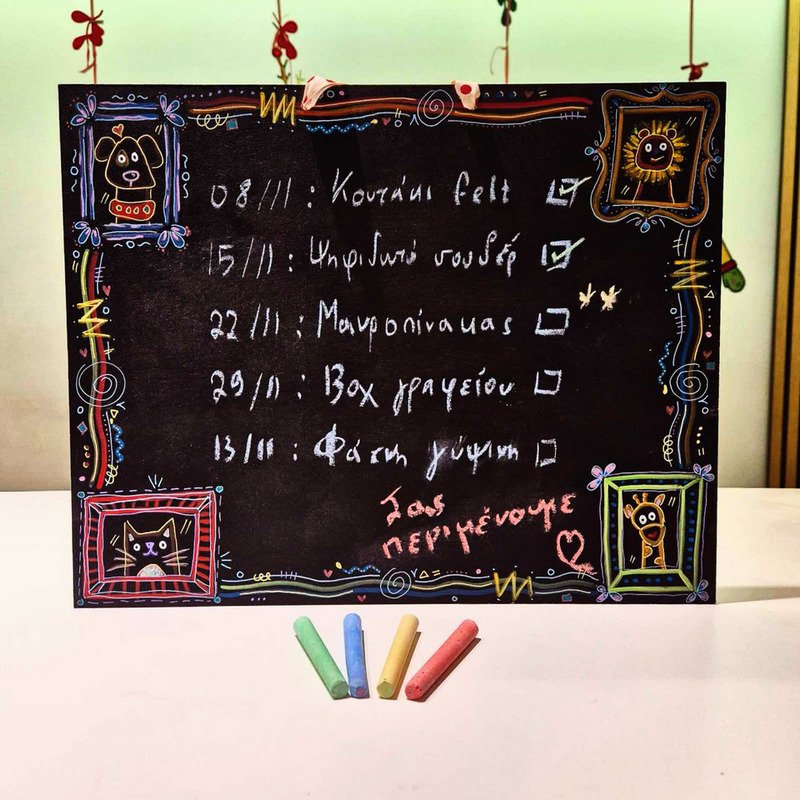 08/11 : Κουτάκι felt
15/11 : Ψηφιδωτό σουβέρ
22/11 : Μαυροπίνακας
29/11 : Βοχ γραφείου
13/11 : Φάτνη γύψινη
Σας
περιμένουμε